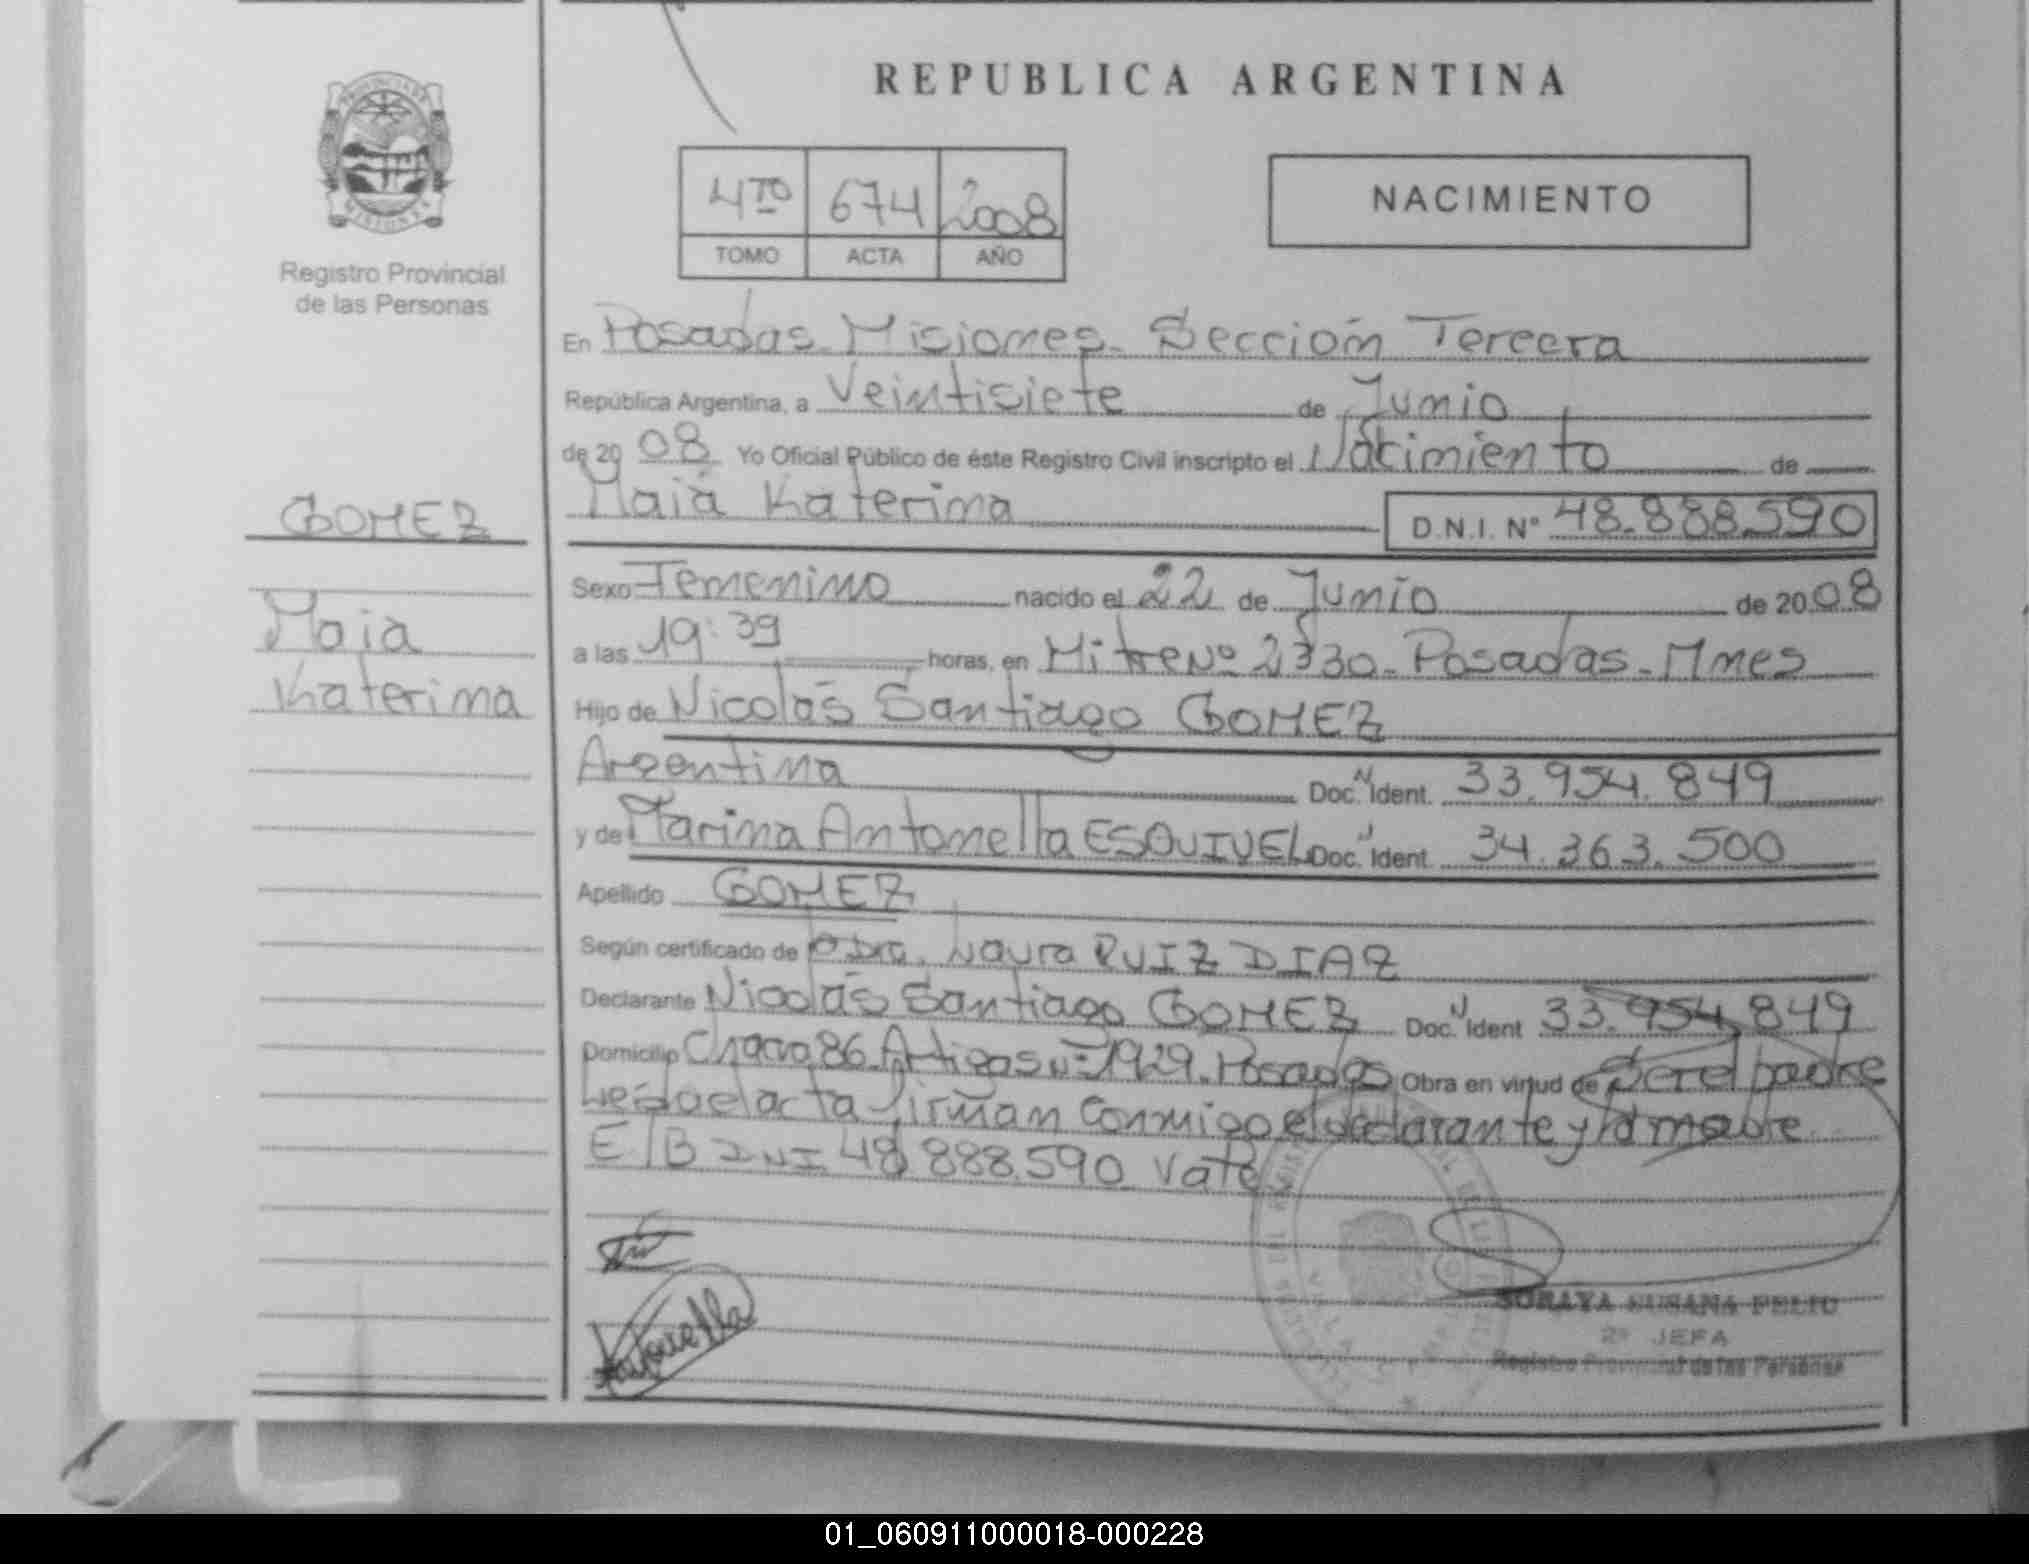 REPUBLICA ARGENTINA
4TO 674 2008
TOMO ACTA AÑO
NACIMIENTO
Registro Provincial
de las Personas
GOMEZ
Maia
Katerina
En Posadas - Misiones - Sección Tercera
República Argentina, a Veintisiete de Junio
de 2008 Yo Oficial Público de éste Registro Civil inscripto el Nacimiento de
Maia Katerina D.N.I. Nº 48.888.590
Sexo Femenino nacido el 22 de Junio de 2008
a las 19:39 horas, en Mitre Nº 2330 - Posadas - Mnes
Hijo de Nicolás Santiago GOMEZ
Argentina Doc. Ident. 33.954.849
y de Marina Antonella ESQUIVEL Doc. Ident. 34.363.500
Apellido GOMEZ
Según certificado de Obra. Laura RUIZ DIAZ
Declarante Nicolás Santiago GOMEZ Doc. Ident 33.954.849
Domicilio Chacra 86 - Artigas Nº 1929 - Posadas Obra en virtud de Ser el padre
Leída el acta firman Conmigo el declarante y la madre
E/B DNI 48.888.590 Vale
Antonella
SORAYA SUSANA FELIU
2º JEFA
Registro Provincial de las Personas
01_060911000018-000228